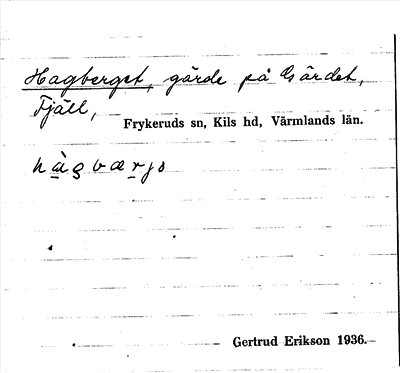 Hagberget, gärde på Gärdet,
Fjäll,
Frykeruds sn, Kils hd, Värmlands län.
hàgværjə
Gertrud Erikson 1936.